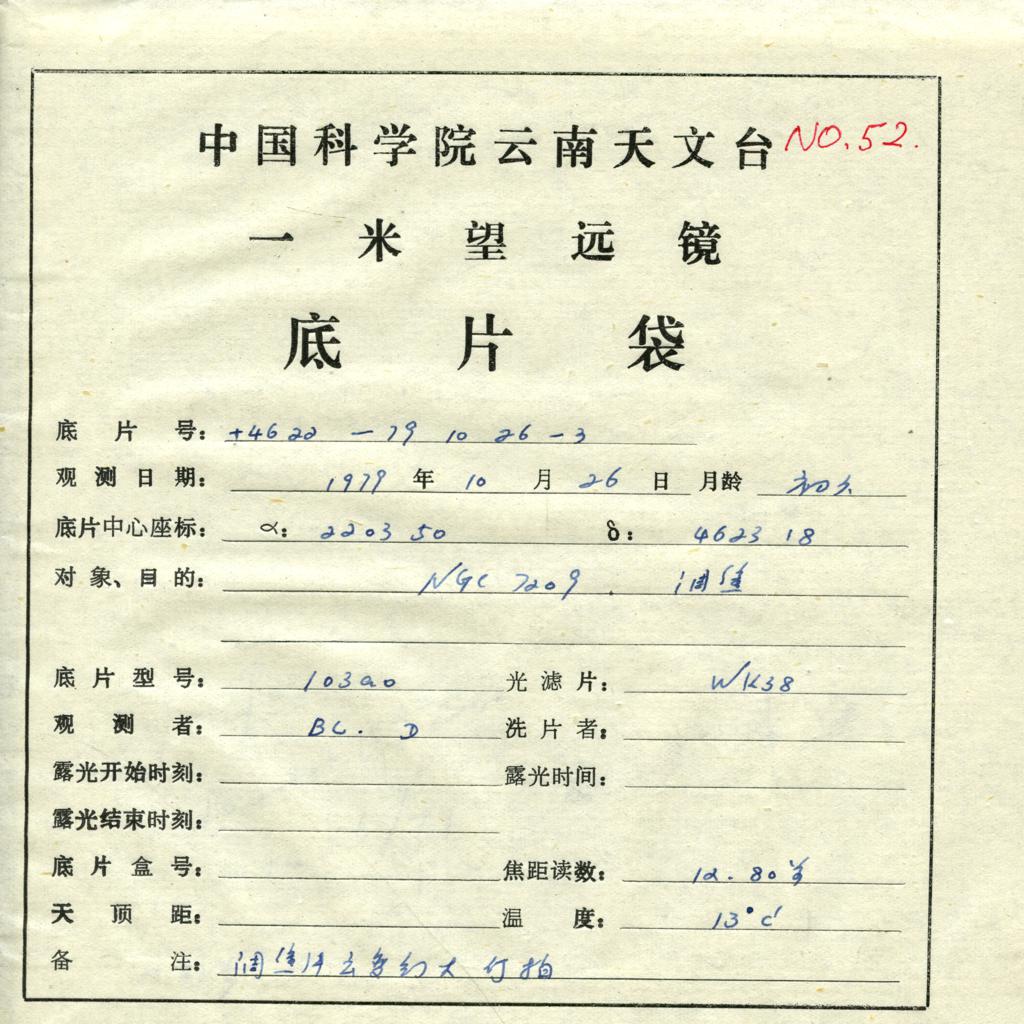 中国科学院云南天文台 NO.52.
一米望远镜
底片袋
底片号: +4622 — 79 10 26 — 3
观测日期: 1979 年 10 月 26 日 月龄 初六
底片中心座标: α: 2203 50 δ: 4623 18
对象、目的: NGC 7209 . 调焦
底片型号: 103aO 光滤片: WK38
观测者: BC. D 洗片者:
露光开始时刻: 露光时间:
露光结束时刻:
底片盒号: 焦距读数: 12.80
天顶距: 温度: 13°C
备注: 调焦片